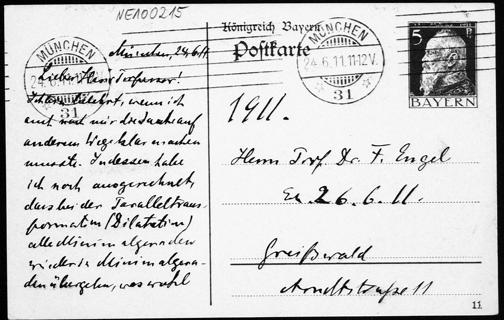 NE100215
Königreich Bayern
Postkarte
MÜNCHEN
24.6.11.11-12V.
31
MÜNCHEN
24.6.11.11-12V.
31
5 P
BAYERN
München, 24.6.11
Lieber Herr Professor!
wenn ich
erst mir die auf
anderem Wege klar machen
musste. Indessen habe
ich noch ausgerechnet,
dass bei der Paralleltrans-
formation (Dilatation)
alle Minimalgeraden
wieder in Minimalgera-
den übergehen, was wohl
1911.
Herrn Prof. Dr. F. Engel
26.6.11.
Greifswald
Arndtstraße 11
11